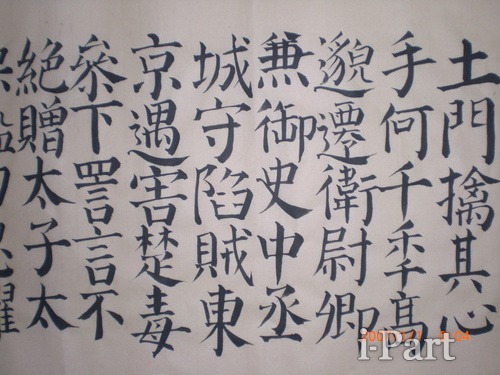 土門擒其心
手何千秊高
邈遷衛尉卿
兼御史中丞
城守陷賊東
京遇害楚毒
叅下詈言不
絕贈太子太
i-Part